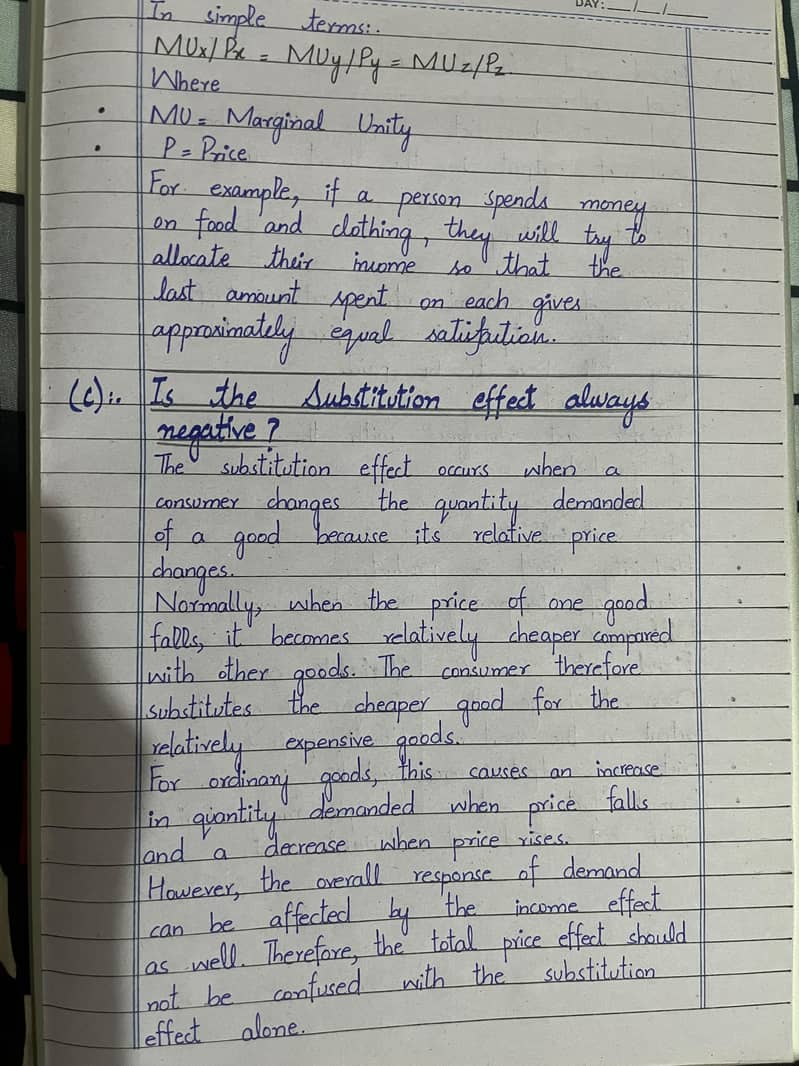 DAY:__/__/____
In simple terms:.
MUx/Px = MUy/Py = MUz/Pz.
Where
• MU = Marginal Unity
• P = Price
For example, if a person spends money
on food and clothing, they will try to
allocate their income so that the
last amount spent on each gives
approximately equal satisfaction.
(c):. Is the Substitution effect always
negative?
The substitution effect occurs when a
consumer changes the quantity demanded
of a good because its relative price
changes.
Normally, when the price of one good
falls, it becomes relatively cheaper compared
with other goods. The consumer therefore
substitutes the cheaper good for the
relatively expensive goods.
For ordinary goods, this causes an increase
in quantity demanded when price falls
and a decrease when price rises.
However, the overall response of demand
can be affected by the income effect
as well. Therefore, the total price effect should
not be confused with the substitution
effect alone.